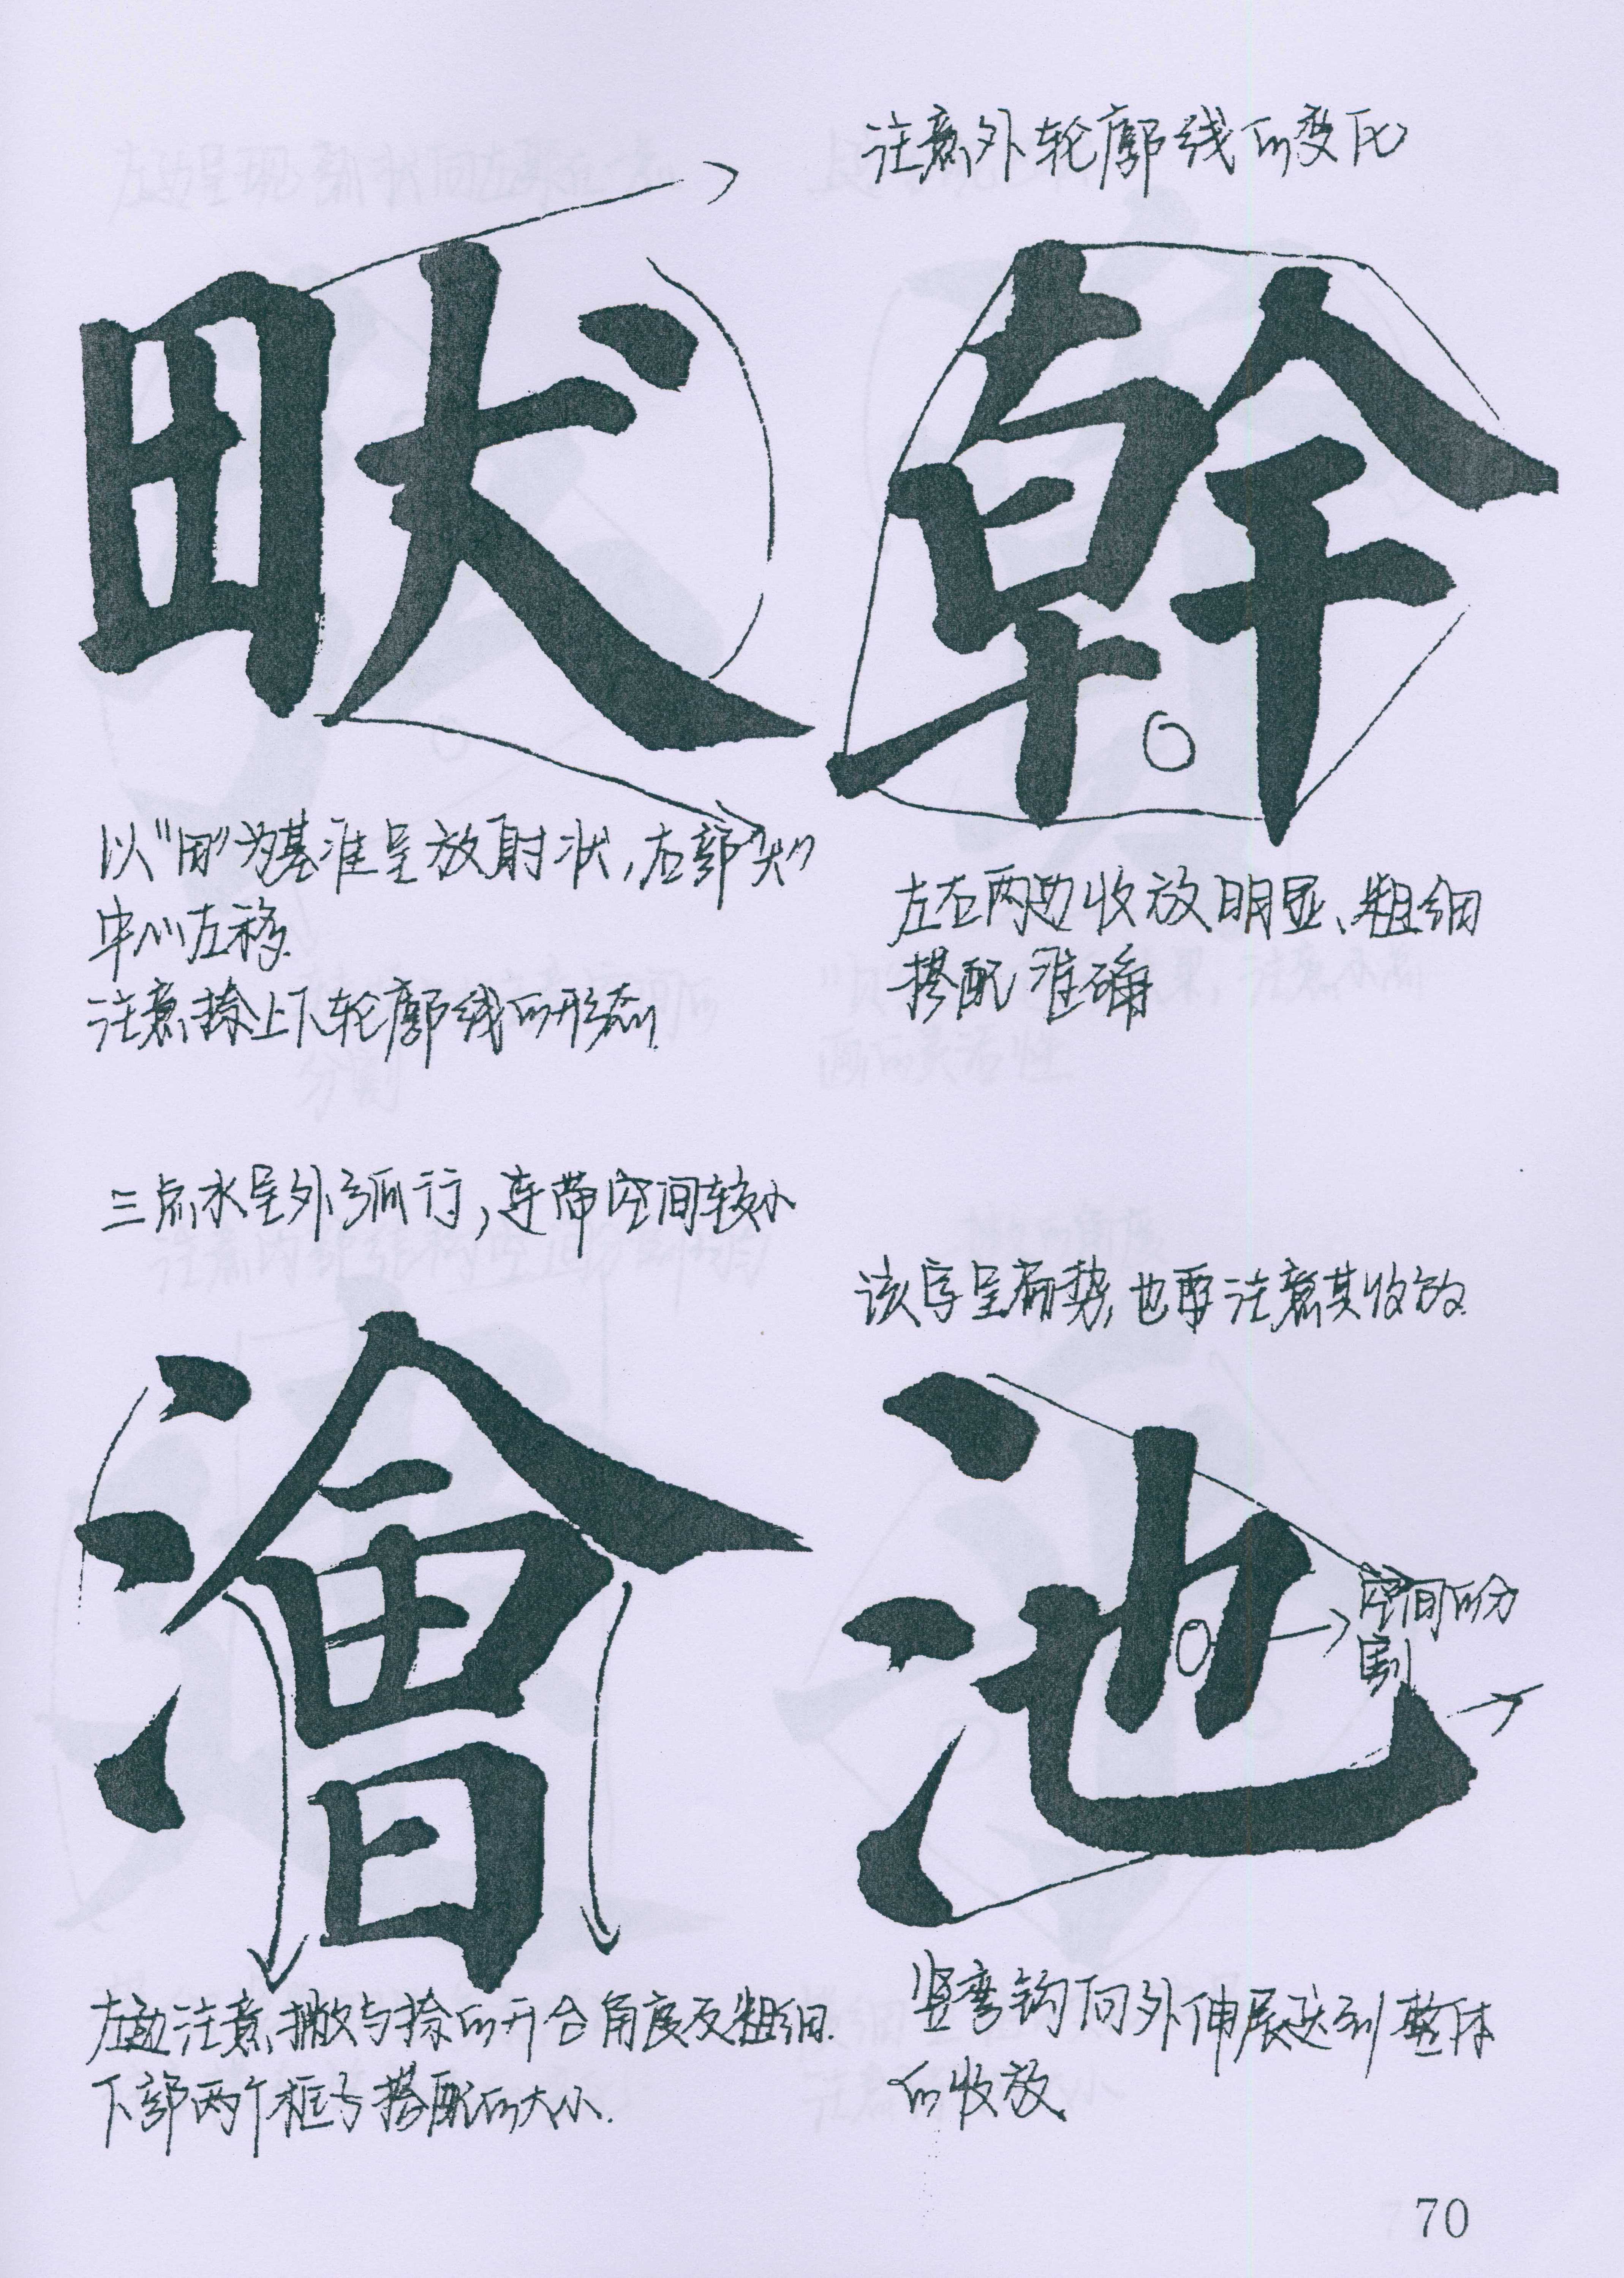 注意外轮廓线的变化
畎
幹
以"田"为基准呈放射状，右部"犬"
中心左移.
注意捺上下轮廓线的形态.
左右两边收放明显、粗细
搭配准确
三点水呈外弧行，连带空间较小
该字呈扇势，也要注意其收放.
澮
池
空间的分
割
左边注意撇与捺的开合角度及粗细.
下部两个框与搭配的大小.
竖弯钩向外伸展达到整体
的收放
70